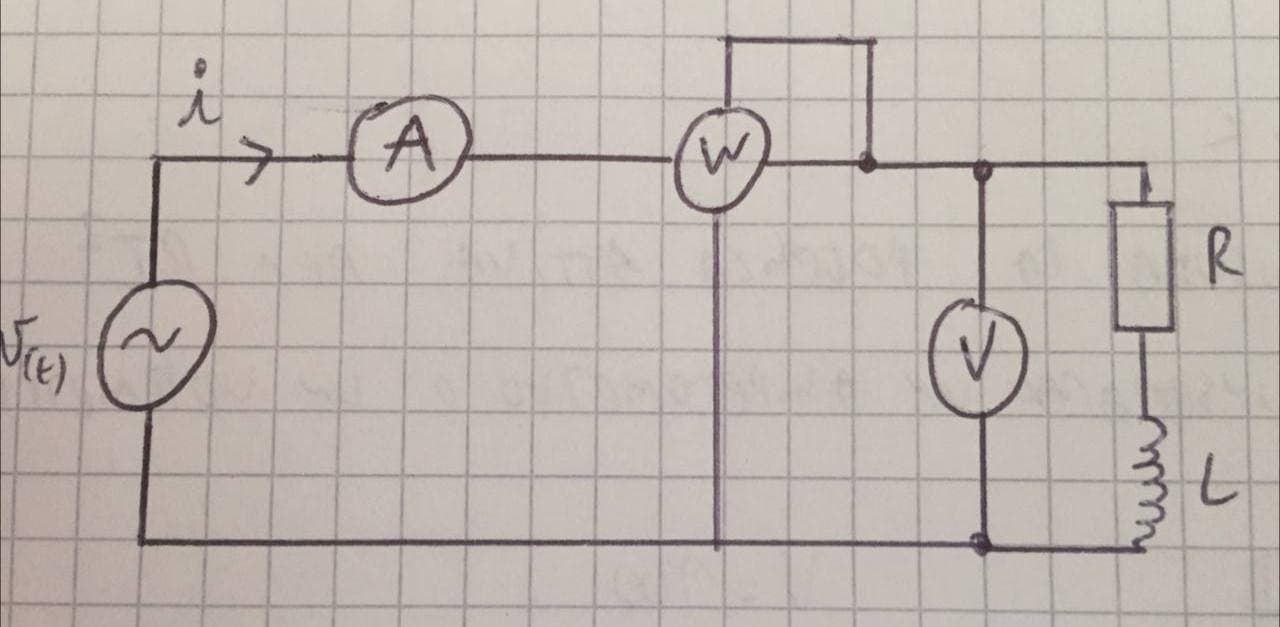 i
A
W
V(t)
V
R
L